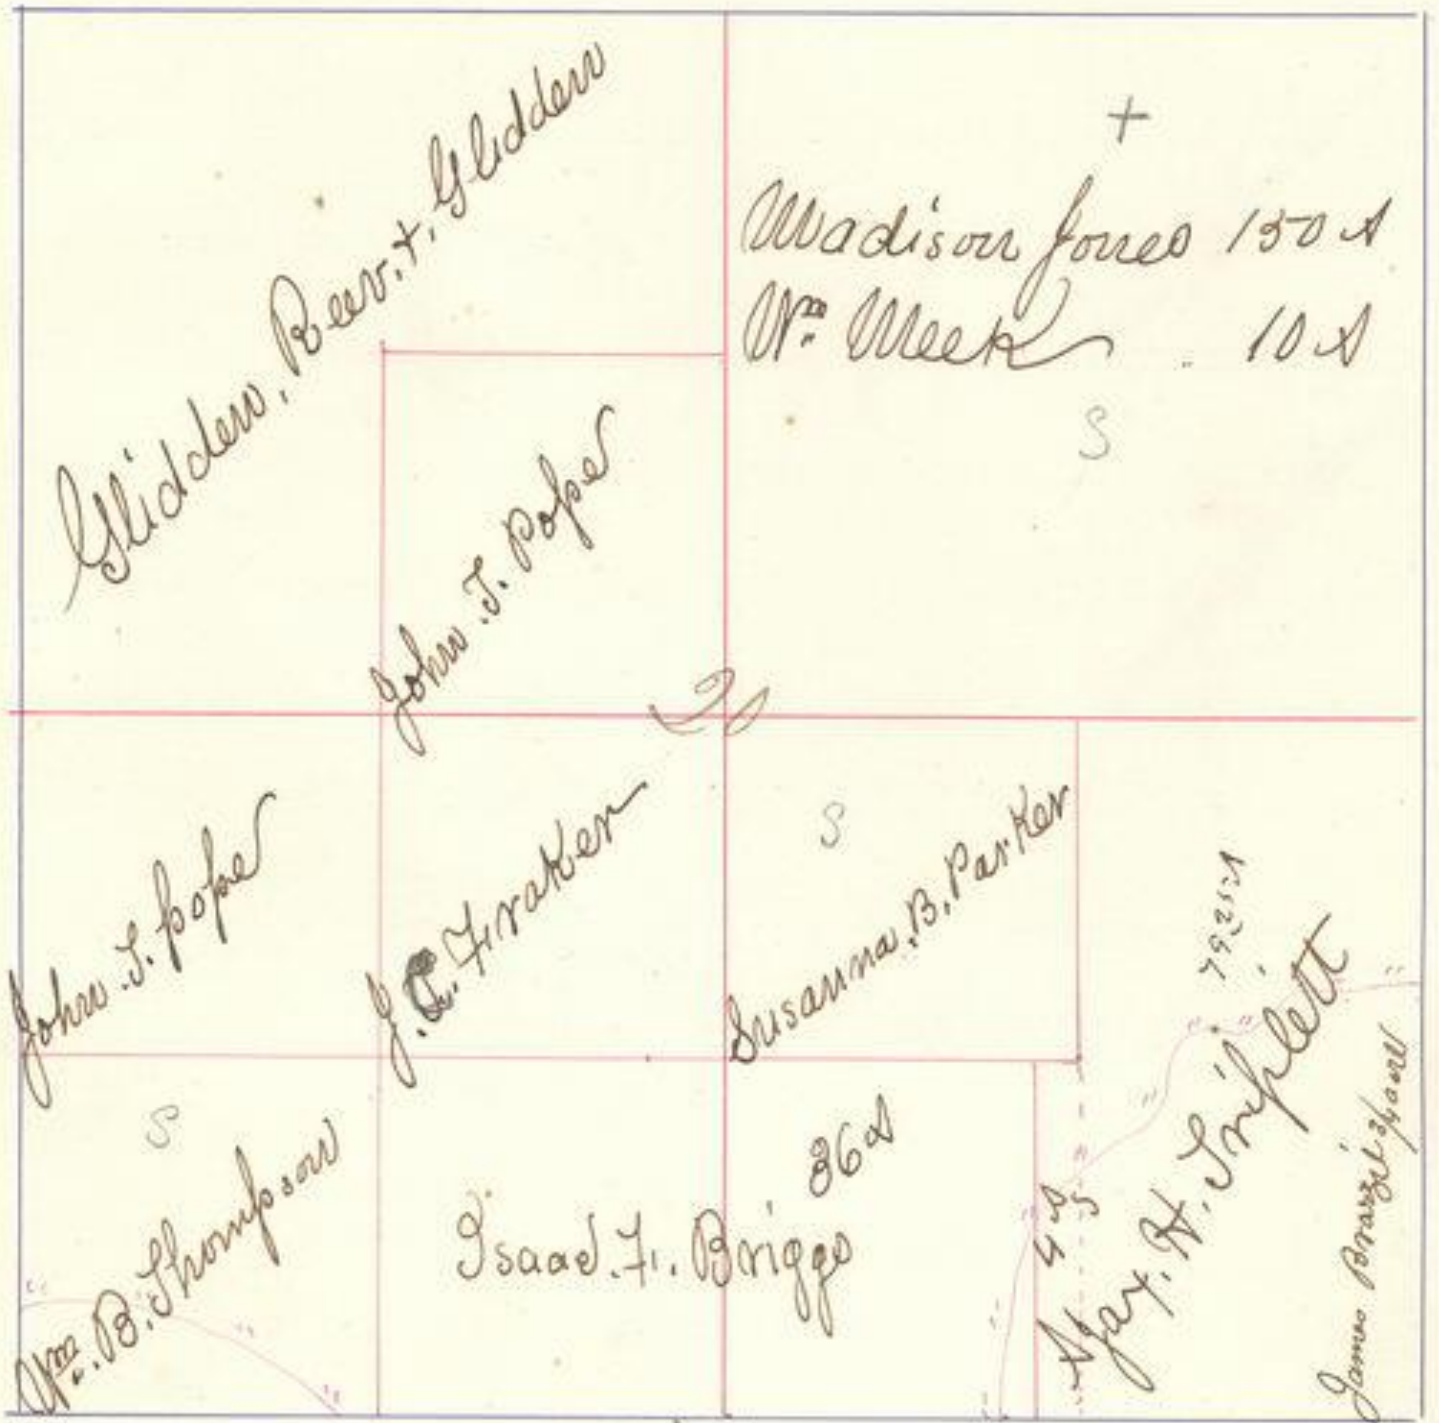 Glidden, Reev. +. Glidden
+
Madison Jones 150 A
Wm. Meek 10 A
S
John. T. Pope
20
John. T. pope
J. C. Fraker
S
Susanna. B. Parker
79.25 A
S
Wm. B. Thompson
Isaac. F. Briggs
36 A
4 A
S
Ajax. H. Triplett
James Brazil 3/4 acre